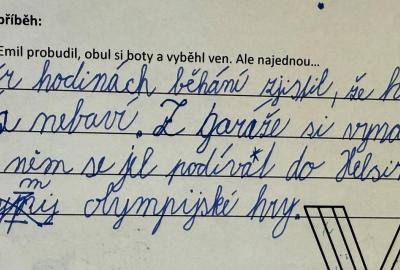 příběh:
Emil probudil, obul si boty a vyběhl ven. Ale najednou...
hodinách běhání zjistil, že
nebaví. Z garáže si
něm se jel podívat do
olympijské hry.